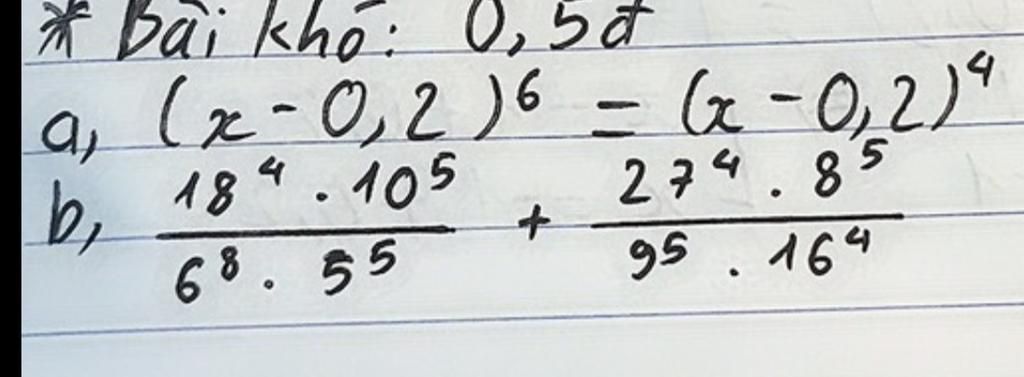 * Bài khó: 0,5đ
a, (x - 0,2)⁶ = (x - 0,2)⁴
b, 18⁴ . 10⁵ / 6⁸ . 5⁵ + 27⁴ . 8⁵ / 9⁵ . 16⁴